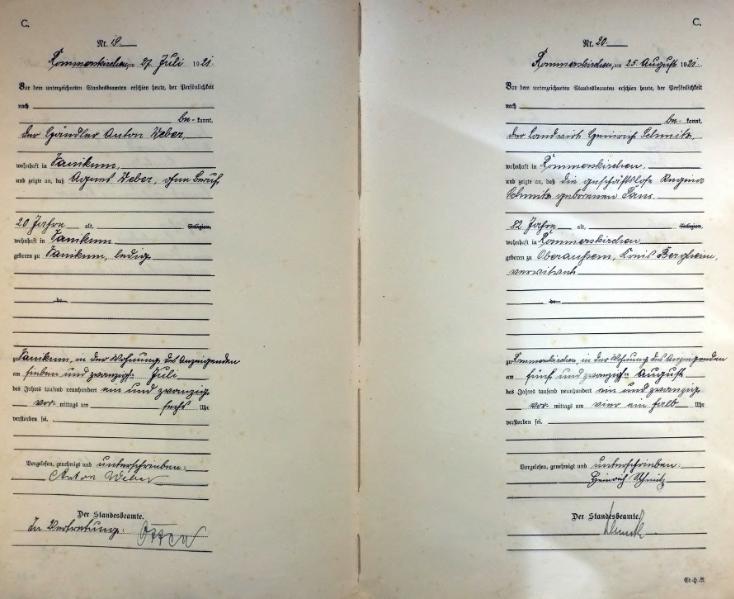 C.
Nr. 19
Rommerskirchen, am 27 Juli 1921.
Vor dem unterzeichneten Standesbeamten erschien heute, der Persönlichkeit
nach
be- kannt,
der Händler Anton Weber,
wohnhaft in Vanikum,
und zeigte an, daß Agnes Weber, ohne Beruf
20 Jahre alt, Religion,
wohnhaft in Vanikum
geboren zu Vanikum, ledig
zu Vanikum, in der Wohnung des Anzeigenden
am sieben und zwanzigsten Juli
des Jahres tausend neunhundert ein und zwanzig
vor mittags um sechs Uhr
verstorben sei.
Vorgelesen, genehmigt und unterschrieben:
Anton Weber
Der Standesbeamte.
In Vertretung:
C.
Nr. 20
Rommerskirchen, am 25 August 1921.
Vor dem unterzeichneten Standesbeamten erschien heute, der Persönlichkeit
nach
be- kannt,
der Landwirt Heinrich Schmitz,
wohnhaft in Rommerskirchen
und zeigte an, daß die geschäftslose Regina
Schmitz geborenen
82 Jahre alt, Religion,
wohnhaft in Rommerskirchen
geboren zu Oberaußem, Kreis Bergheim,
verwitwet
zu Rommerskirchen, in der Wohnung des Anzeigenden
am fünf und zwanzigsten August
des Jahres tausend neunhundert ein und zwanzig
vor mittags um vier ein halb Uhr
verstorben sei.
Vorgelesen, genehmigt und unterschrieben:
Heinrich Schmitz
Der Standesbeamte.